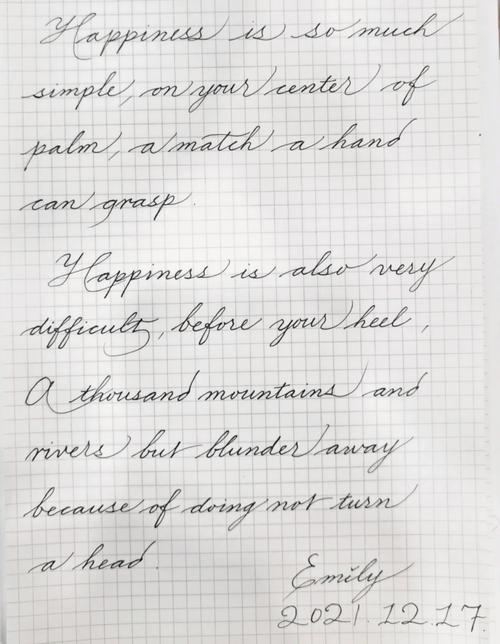 Happiness is so much
simple, on your center of
palm, a match a hand
can grasp.
Happiness is also very
difficult, before your heel,
A thousand mountains and
rivers but blunder away
because of doing not turn
a head.
Emily
2021.12.17.